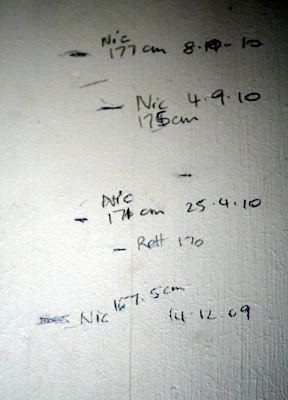 Nic
177cm 8·10-10
Nic 4·9·10
175cm
Nic
171cm 25·4·10
Rett 170
Nic 167.5cm 14·12·09